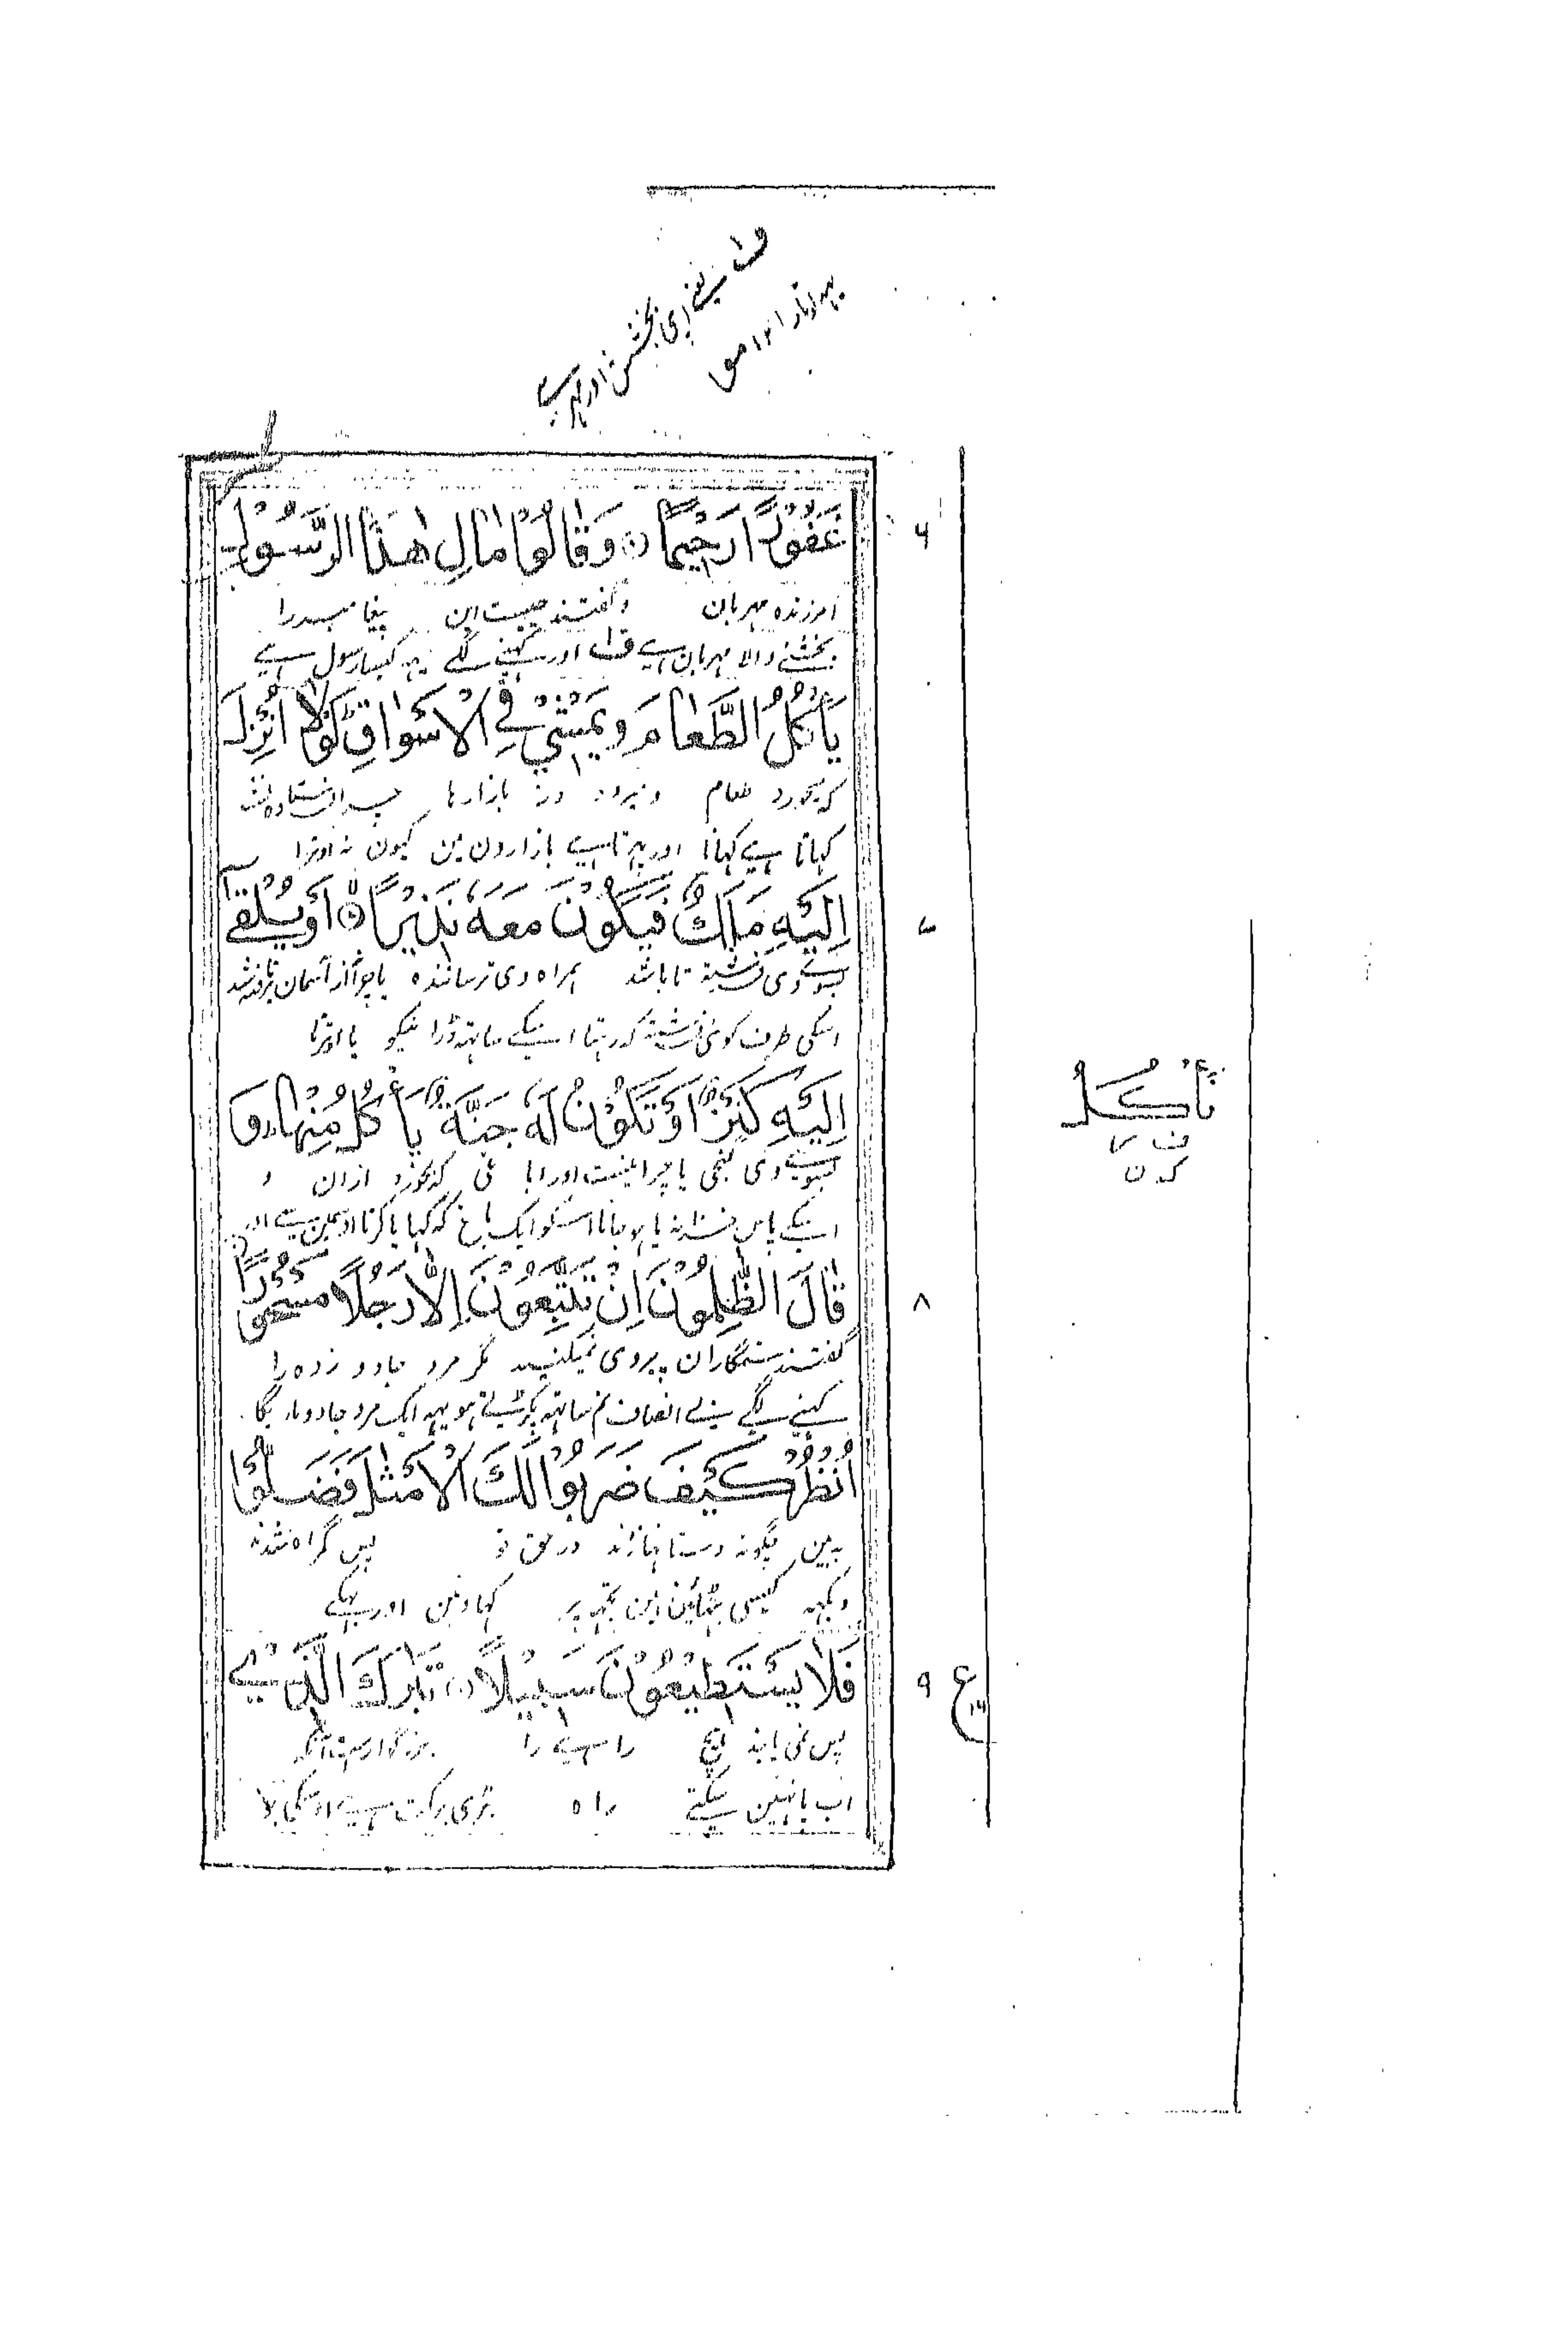 غَفُوْرًا رَّحِيْمًا ۝ وَقَالُوْا مَالِ هٰذَا الرَّسُوْلِ
۶
آمرزنده مهربان وگفتند چیست این پیغامبر را
بخشنے والا مہربان ہے ف اور کہنے لگے یہہ کیسا رسول ہے
يَاْكُلُ الطَّعَامَ وَيَمْشِيْ فِي الْاَسْوَاقِ لَوْلَا اُنْزِلَ
که میخورد طعام و میرود در بازارها چرا فرستاده نشد
کہاتا ہے کہانا اور پہرتا ہے بازارون مین کیون نہ اوترا
اِلَيْهِ مَلَكٌ فَيَكُوْنَ مَعَهٗ نَذِيْرًا ۝ اَوْ يُلْقٰٓى
۷
بسوے وی فرشتۀ تا باشد همراه وی ترساننده یا چرا از آسمان
اسکی طرف کوئی فرشتہ کہ رہتا اسکے ساتہہ ڈرانیکو یا اوترتا
اِلَيْهِ كَنْزٌ اَوْ تَكُوْنُ لَهٗ جَنَّةٌ يَّاْكُلُ مِنْهَا وَ
بسوے وی گنجی یا چرا نیست اورا باغی که بخورد ازان و
اسکے پاس خزانہ یا ہو جاتا اسکو ایک باغ کہ کہایا کرتا اوسمین سے اور
يَاْكُلُ
قَالَ الظّٰلِمُوْنَ اِنْ تَتَّبِعُوْنَ اِلَّا رَجُلًا مَّسْحُوْرًا
۸
گفتند ستمگاران پیروی نمیکنید مگر مرد جادو زده را
کہنے لگے بے انصاف تم ساتہہ پکڑتے ہو یہہ ایک مرد جادو مارے کا
اُنْظُرْ كَيْفَ ضَرَبُوْا لَكَ الْاَمْثَالَ فَضَلُّوْا
ببین چگونه داستانها زدند در حق تو پس گمراه شدند
دیکہہ کیسی بٹہائین تجہہ پر کہاوتین اور بہکے
فَلَا يَسْتَطِيْعُوْنَ سَبِيْلًا ۝ تَبٰرَكَ الَّذِيْ
۹ ع
پس نمی یابند هیچ راہے را بزرگوارست آنکه
اب پا نہین سکتے راہ بڑی برکت ہے اوسکی